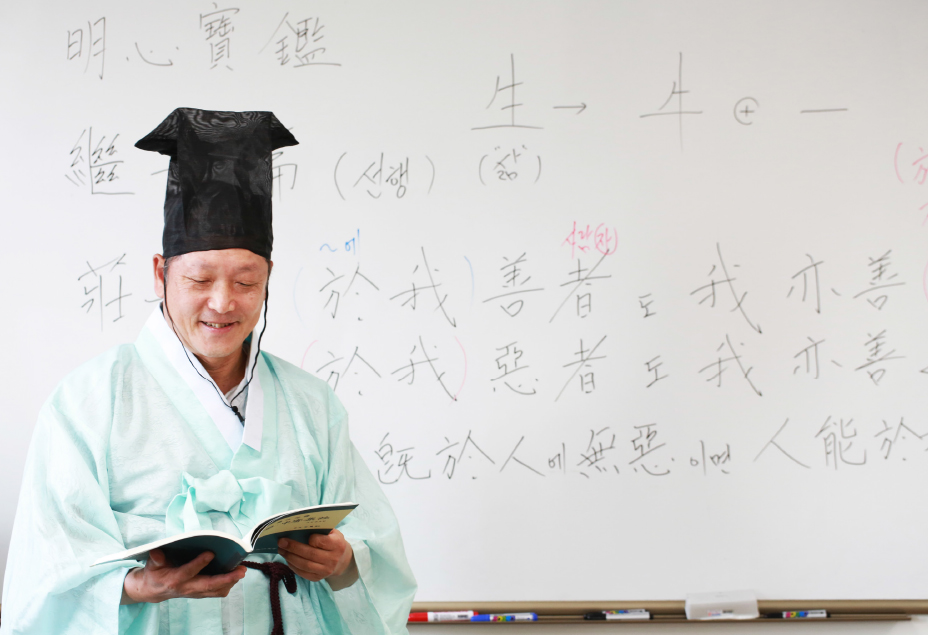 明心寶鑑
生 → 牛 ⊕ 一
繼 (선행) (삶)
~에 사람(자)
莊 (於我) 善者도 我亦善
(於我) 惡者도 我亦善
旣於人에 無惡이면 人能於